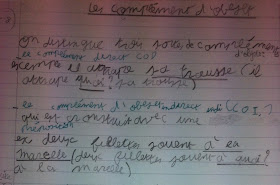 Les complément d'objet
On distingue trois sortes de compléments d'objet
le complément direct COD
exemple il attrape sa trousse (il
attrape quoi? sa trousse)
- le complément d'objet indirect est (C.O.I.)
qui est construit avec une
préposition
ex deux fillettes jouent à la
marelle (deux fillettes jouent à quoi?
à la marelle)